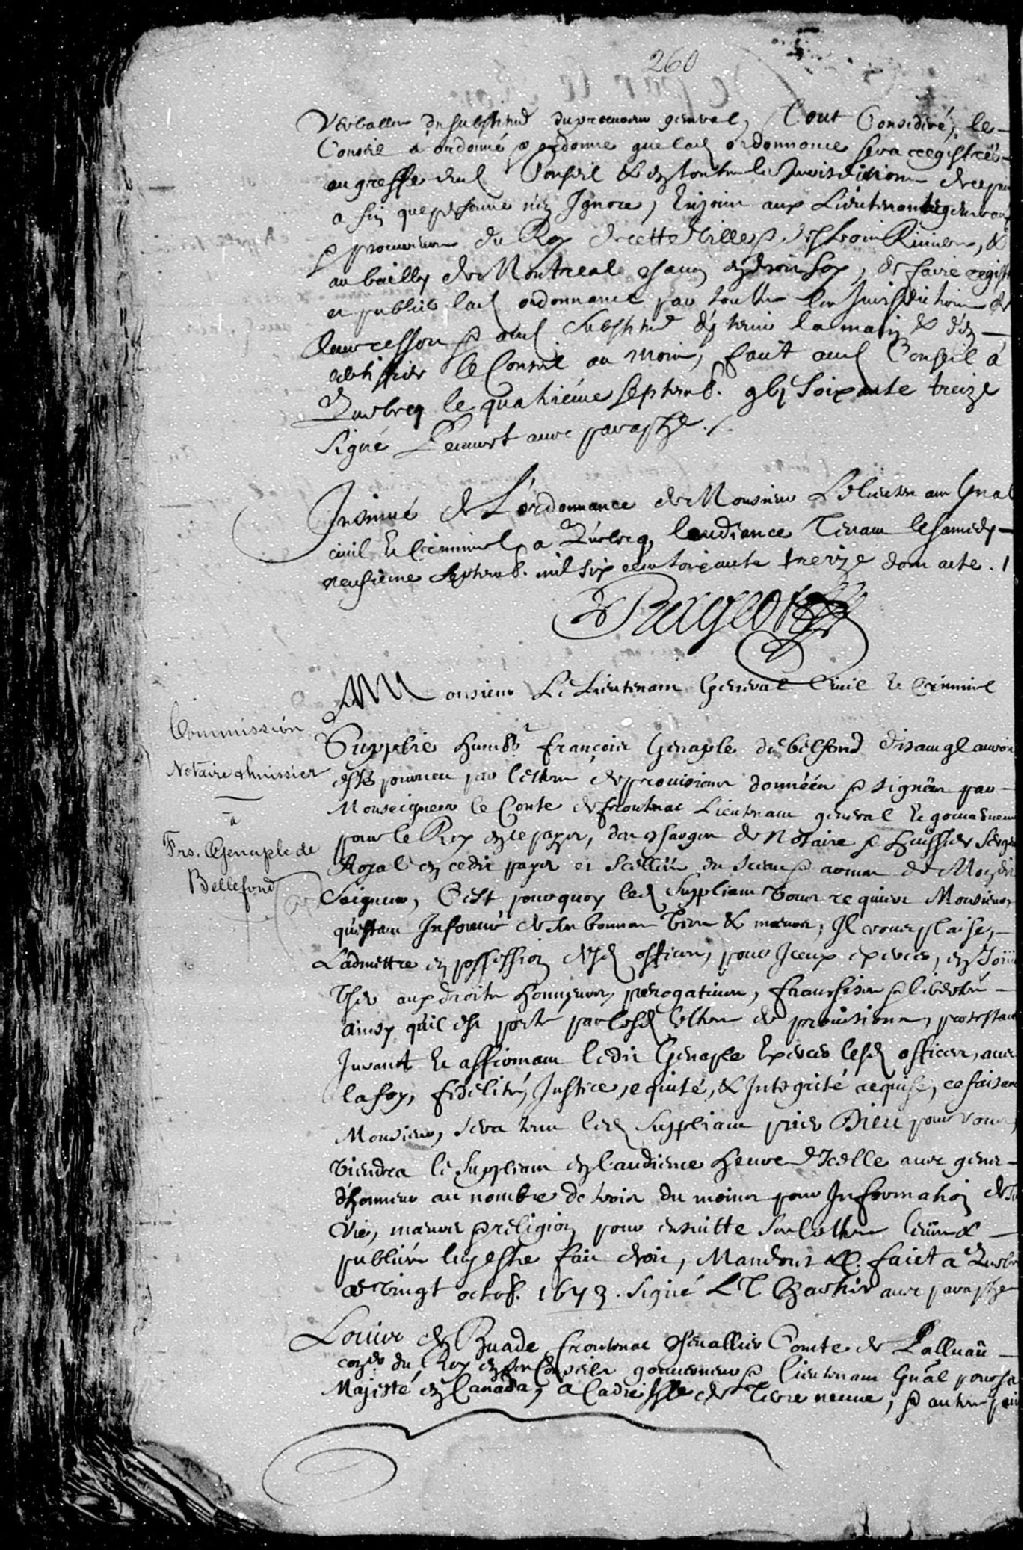 260
Verballes du substitud du procureur general, Tout Consideré, le
Conseil a ordonné & ordonne que lad ordonnance sera registrée
au greffe dud Conseil & en toutes les Jurisdictions de ce pais
a fin que personne n'en Ignore, Enjoint aux Lieutenants generaux
& procureurs du Roy de cette Ville & des trois Rivieres, &
au bailly de Montreal chacun en droit soy, de faire registrer
et publier lad ordonnance par toutes les Jurisdictions de
leur ressort & aud substitud d'y tenir la main & d'en
certiffier le Conseil au mois, faict aud Conseil a
Quebecq le quatriéme septemb. gbj Soixante treize
Signé Peuvret avec paraphe ./.
Insinué de L'ordonnance de Monsieur Le lieuten ant Gnal
civil & Criminel, a Quebecq, laudiance Tenant le samedy
neufieme septemb. mil six cent soixante treize dont acte .
Rageot
Monsieur Le Lieutenant General Civil & Criminel
Commission
Notaire & huissier
a
Frs. Genaple de
Bellefond
Supplie humbt François Genaple de belfond disant quavoir
esté pourveu par lettres de provisions données & signées par
Monseigneur le Conte de frontenac Lieutenant general & gouverneur
pour le Roy en ce pays, des charges de Notaire & huissier sergent
Royal en cedit pays et scellées du sceau & armes de Mondit
Seigneur, C'est pourquoy led Suppliant vous requiert Monsieur,
questant Informé de ses bonnes vies & moeurs, Il vous plaise,
L'admettre en possession desd offices, pour Iceux exercer, en Jouir
& user aux droits honneurs, prerogatives, franchises & libertés
ainsy qu'il est porté par lesd lettres de provisions, protestant
Jurant & affirmant ledit Genaple Exercer lesd offices, avec
la foy, fidelité, Justice, equité, & Integrité requise, ce faisant
Monsieur, sera tenu led Suppliant prier Dieu pour vous,
Viendra le Suppliant en l'audience heure d'Icelle avec gens
d'honneur au nombre de trois du moins pour Information de sa
Vie, moeurs & religion pour ensuitte ses lettres leües &
publiées luy estre fait droit, Mandons &c. faict a Quebec
ce vingt octob. 1673. Signé L T Chartier avec paraphe
Louis de Buade frontenac Chevallier Comte de Palluau
coner du Roy en ses Conseils gouverneur & lieutenant Gnal pour sa
Majesté en Canada, a Cadie, Isle de Terre neuve, & autres pais